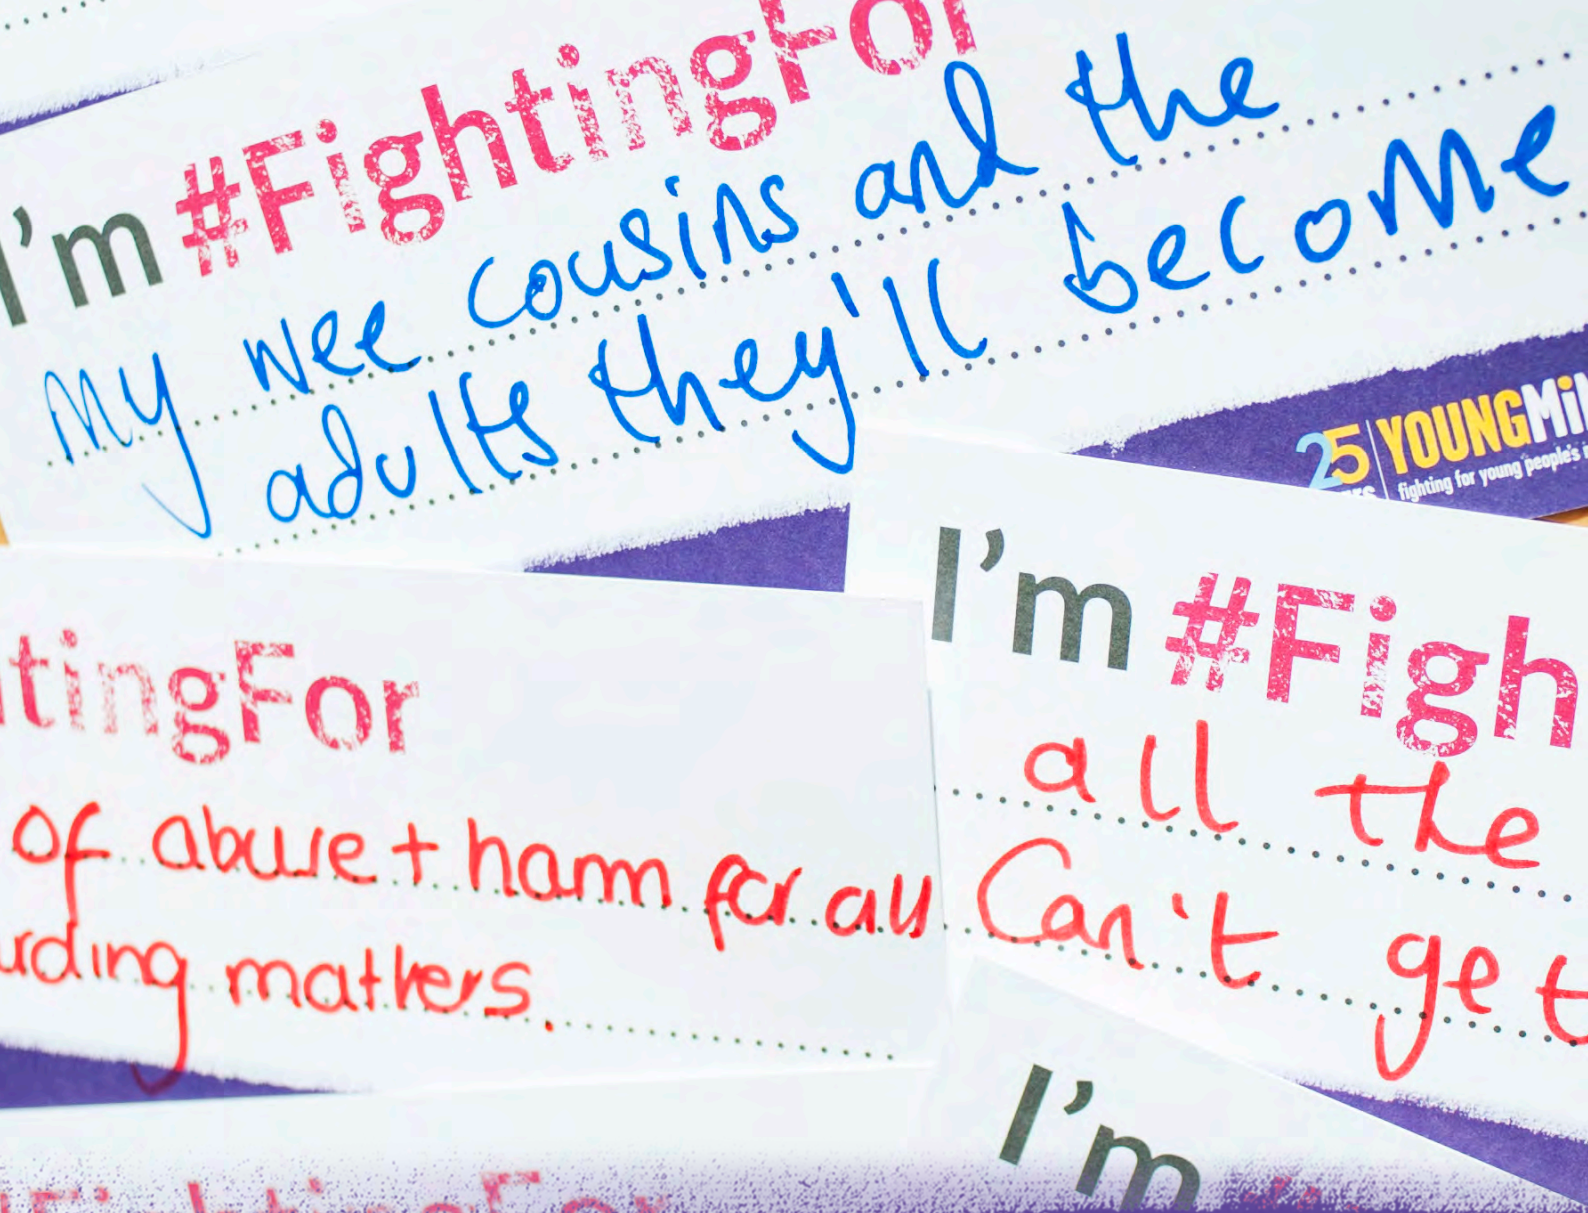 I'm #FightingFor
my wee cousins and the
adults they'll become
25 YOUNGMi
fighting for young people's
tingFor
of abuse + harm for all
rding matters.
I'm #Figh
all the
Can't get
I'm
#FightingFor